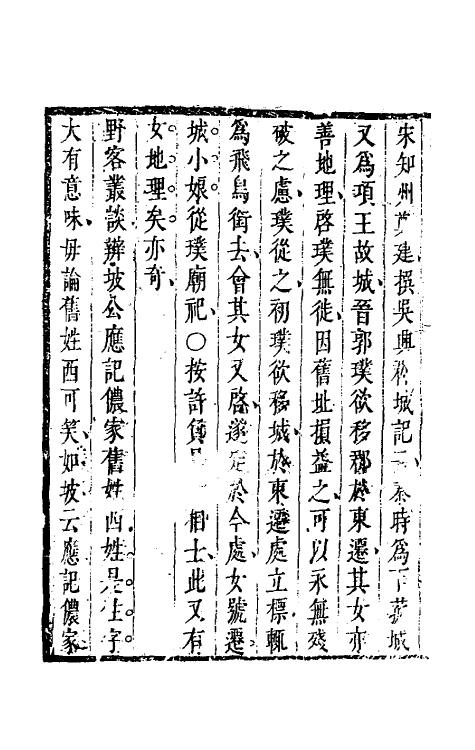 宋知州莫建撰吳興新城記云秦時爲下菰城
又爲項王故城晉郭璞欲移郡於東遷其女亦
善地理啓璞無徙因舊址損益之可以永無殘
破之慮璞從之初璞欲移城於東遷處立標輒
爲飛鳥銜去會其女又啓遂定於今處女號遷
城小娘從璞廟祀〇按許負 相士此又有
女地理矣亦奇
野客叢談辨坡公應記儂家舊姓西姓是住字
大有意味毋論舊姓西可笑如坡云應記儂家